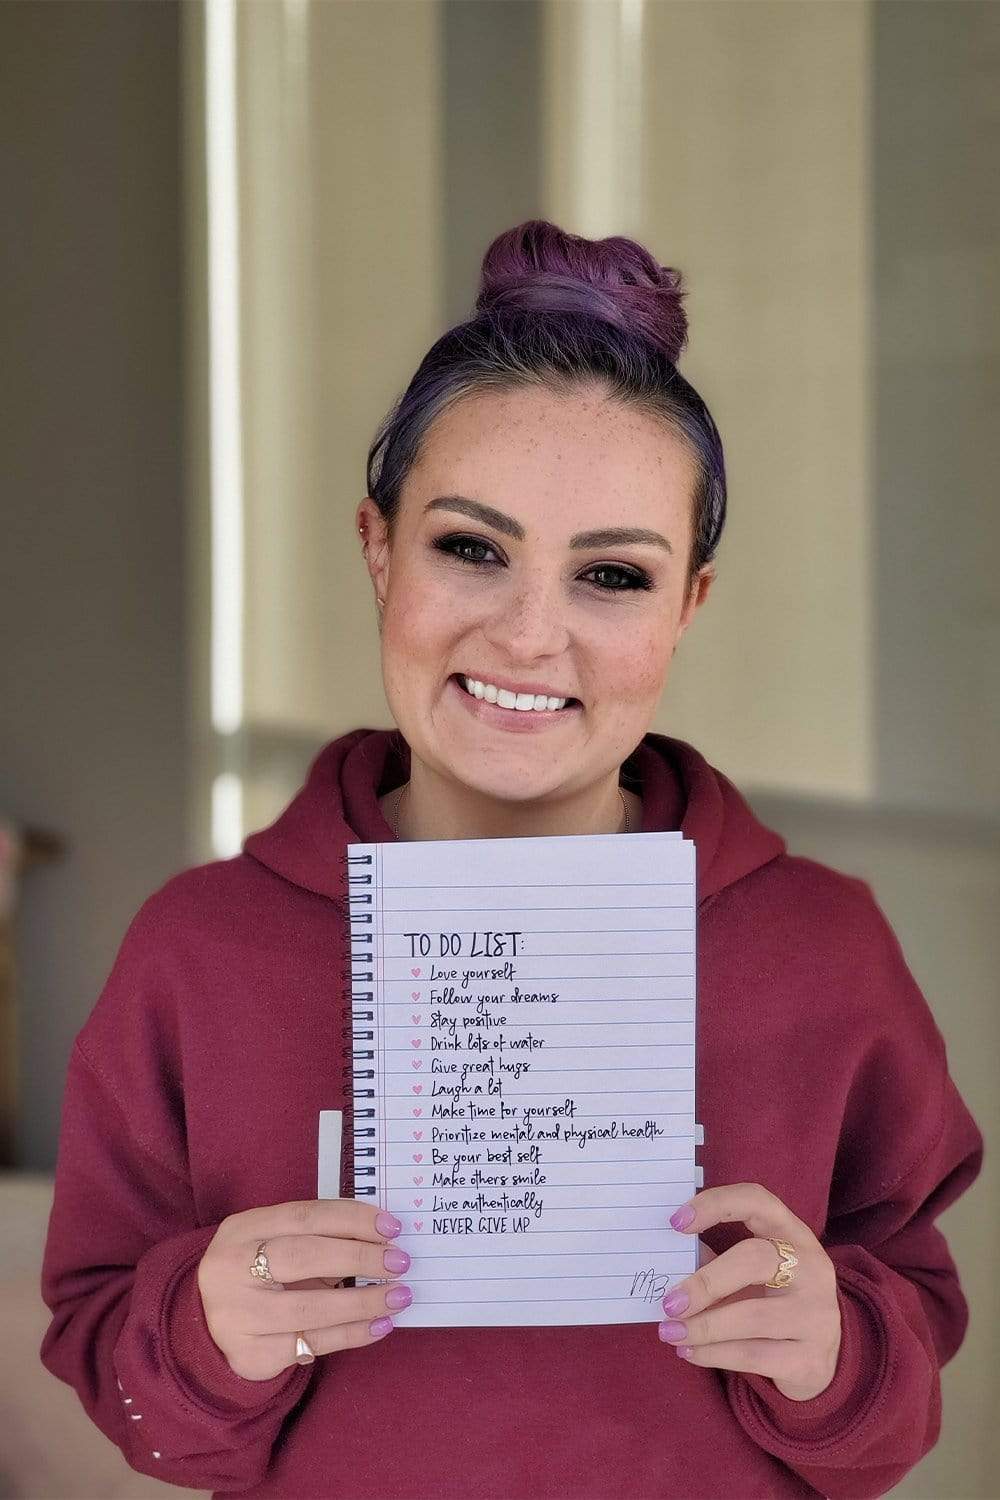 TO DO LIST:
Love yourself
Follow your dreams
Stay positive
Drink lots of water
Give great hugs
Laugh a lot
Make time for yourself
Prioritize mental and physical health
Be your best self
Make others smile
Live authentically
NEVER GIVE UP
MB